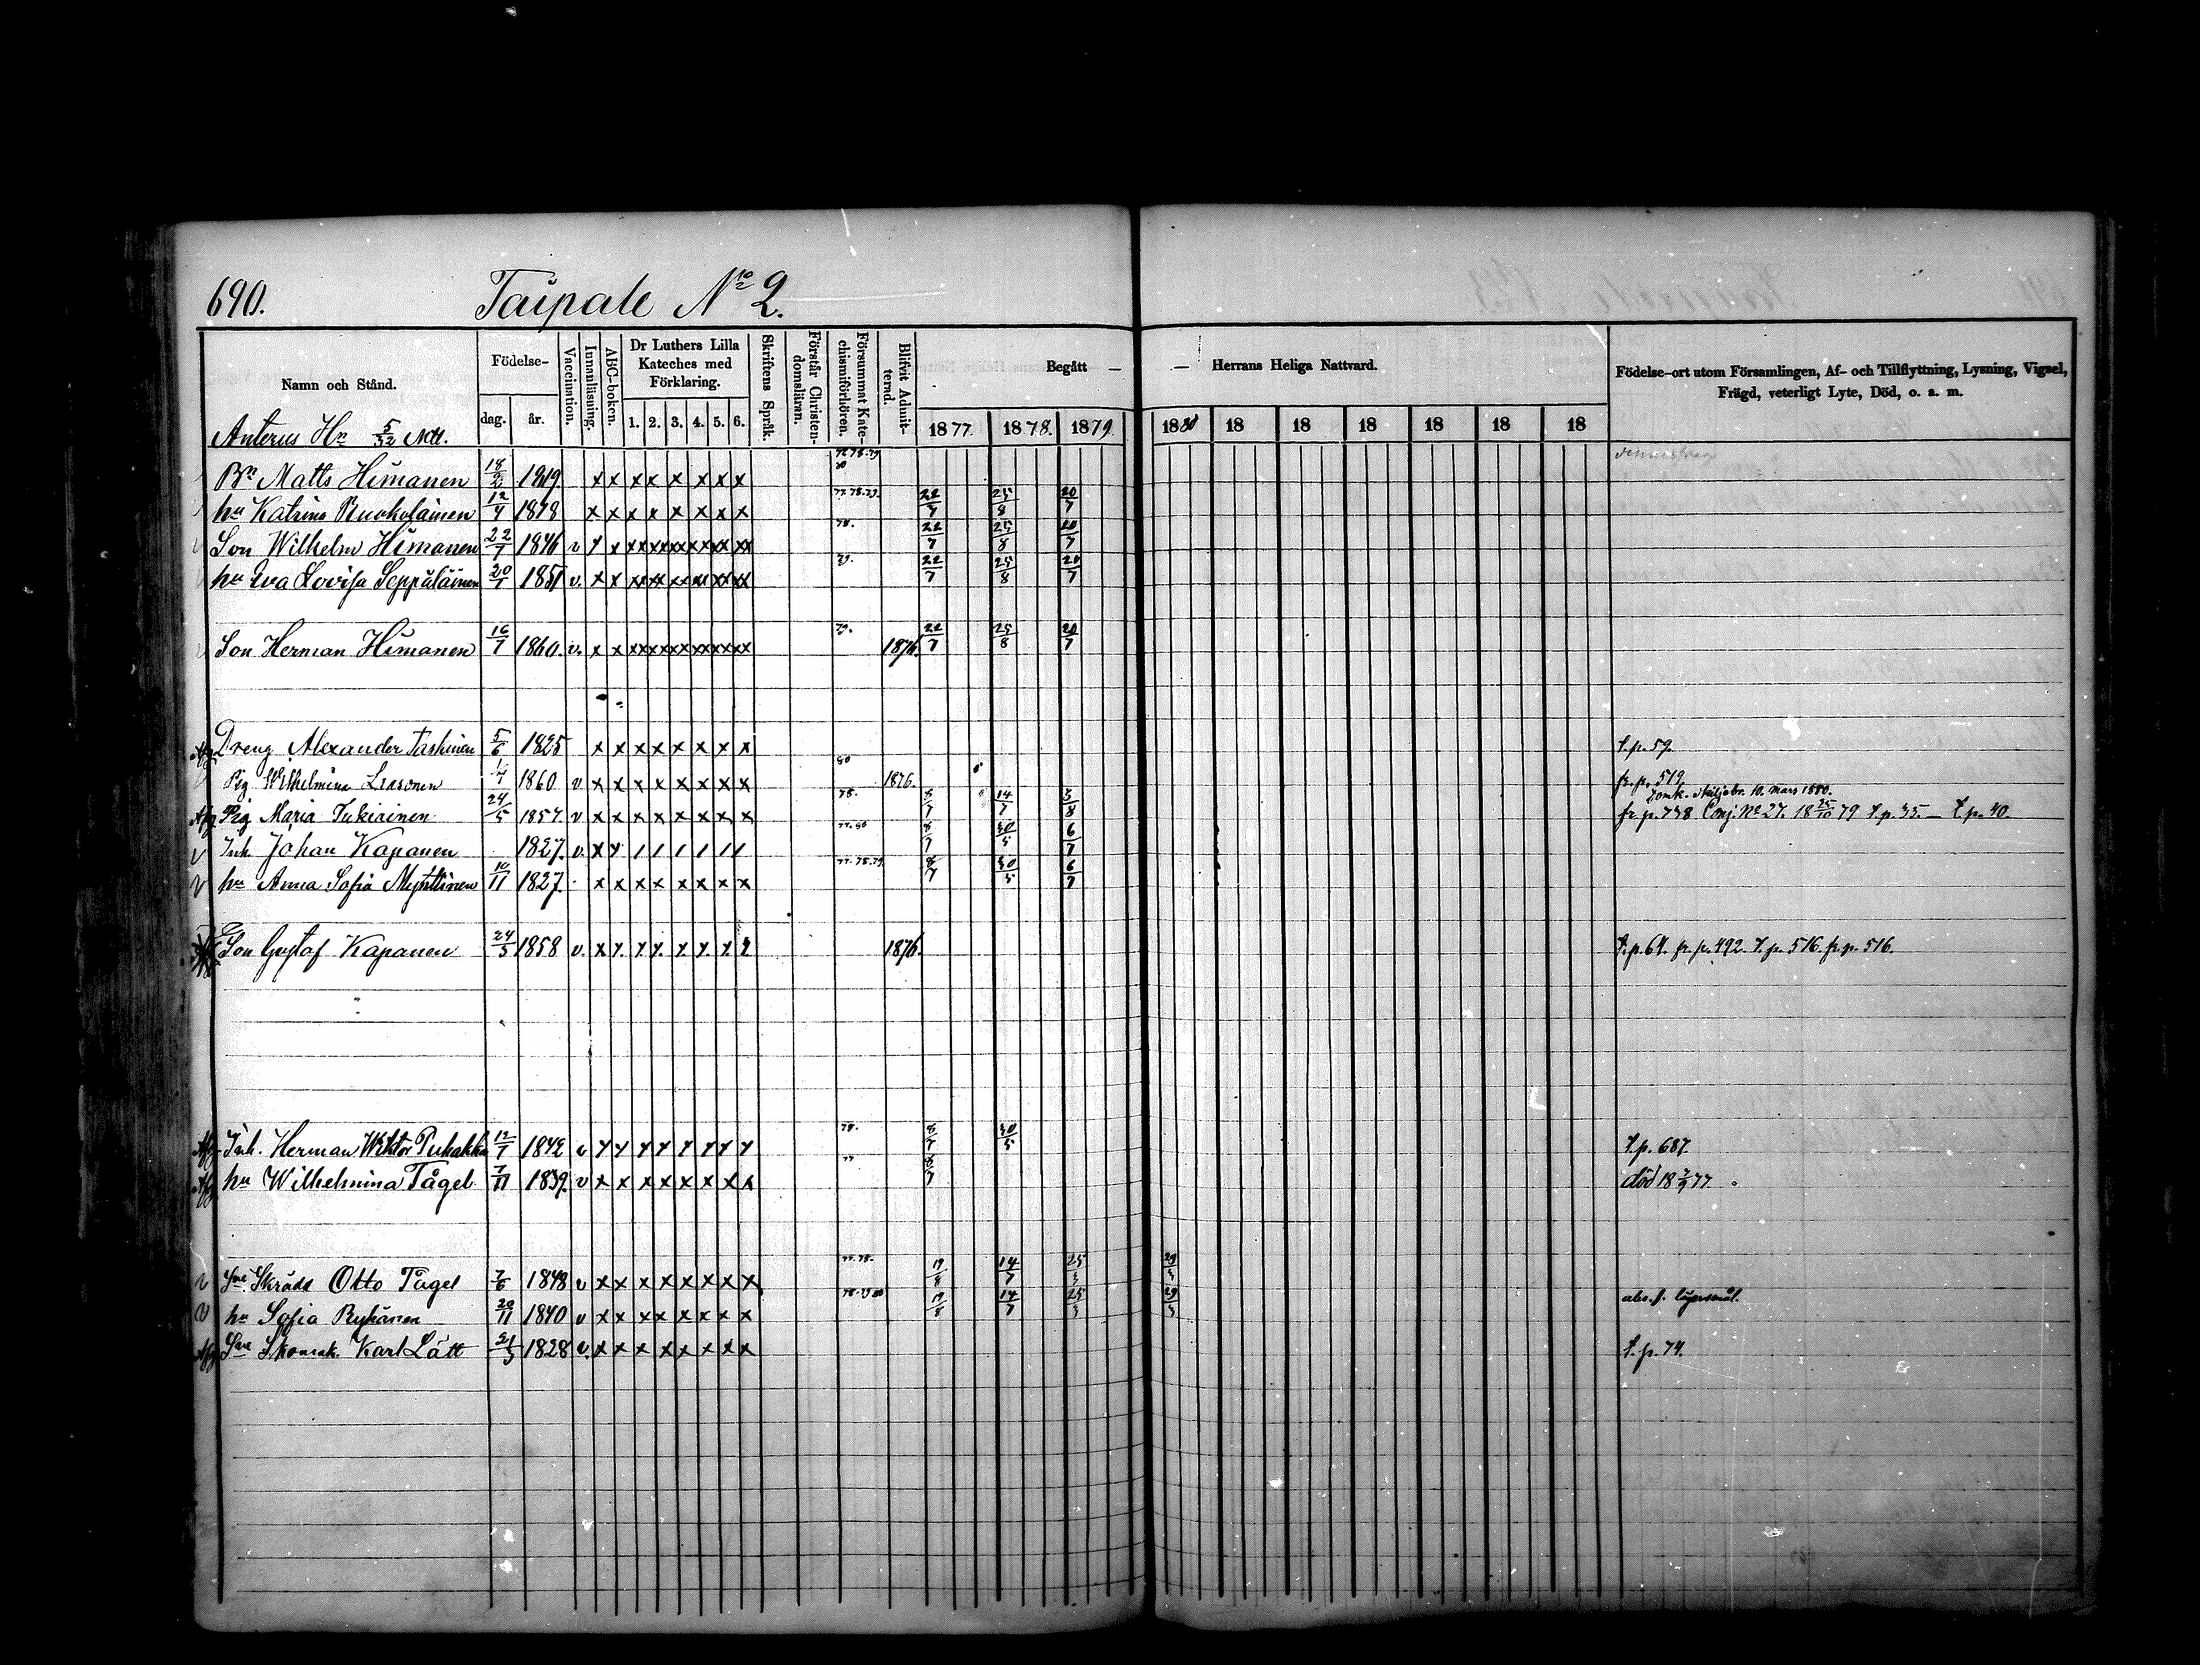 690. Taipale No 2.
Namn och Stånd. Födelse- dag. år. Vaccination. Innanläsning. ABC-boken. Dr Luthers Lilla Kateches med Förklaring. 1. 2. 3. 4. 5. 6. Skriftens Språk. Förstår Christendomsläran. Försummat Katechismiförhören. Blifvit Admitterad. Begått — — Herrans Heliga Nattvard. Födelse-ort utom Församlingen, Af- och Tillflyttning, Lysning, Vigsel, Frägd, veterligt Lyte, Död, o. a. m.
1877. 1878. 1879. 1880 18 18 18 18 18 18
Anterus Hn 5/32 Mtl.
Bn Matts Himanen 18/2 1819. x x x x x x x x
hu Katrina Ruokolainen 12/4 1818 x x x x x x x x 77.78.79. 22/7 25/8 20/7
Son Wilhelm Himanen 22/7 1846 v x x xx xx xx xx xx xx 78. 22/7 25/8 20/7
hu Eva Lovisa Seppäläinen 20/1 1851 v. x x xx xx xx xx xx xx 79. 22/7 25/8 20/7
Son Herman Himanen 16/7 1860. v. x x xx xx xx xx xx xx 79. 1876. 22/7 25/8 20/7
Dreng Alexander Taskinen 5/6 1825 x x x x x x x x t. p. 59.
Pig Wilhelmina 1860 v x x x x x x x x 80 1876. fr. p. 519
Pig Maria Tukiainen 24/5 1857 v x x x x x x x x 78. 8/7 14/7 3/8 10. mars 1880. fr. p. 738 Conj. No 27. 18 25/10 79 t. p. 35. — t. p. 40.
Inh. Johan Kapanen 1827. v. x x 1 1 1 1 1 1 77.80 8/7 30/5 6/7
hu Anna Sofia Mynttinen 10/11 1827. x x x x x x x x 77.78.79. 8/7 30/5 6/7
Son Gustaf Kapanen 24/3 1858 v. x x x x x x x 1876. t. p. 64. fr. p. 492. t. p. 516. fr. p. 516.
Inh. Herman Wiktor Puhakka 12/7 1842 v x x x x x x x x 78. 8/7 30/5 t. p. 687.
hu Wilhelmina Tågel 7/11 1839. v x x x x x x x x 77 8/7 död 18 77.
Sne Skrädd Otto Tågel 7/6 1848 v x x x x x x x x 77.78. 19/8 14/7 25/3 29/3
hu Sofia Ryhänen 20/11 1840 v x x x x x x x x 19/8 14/7 25/3 29/3 abs. f. lägersmål.
Sne Skomak. Karl Lätt 1828 v. x x x x x x x x t. p. 74.